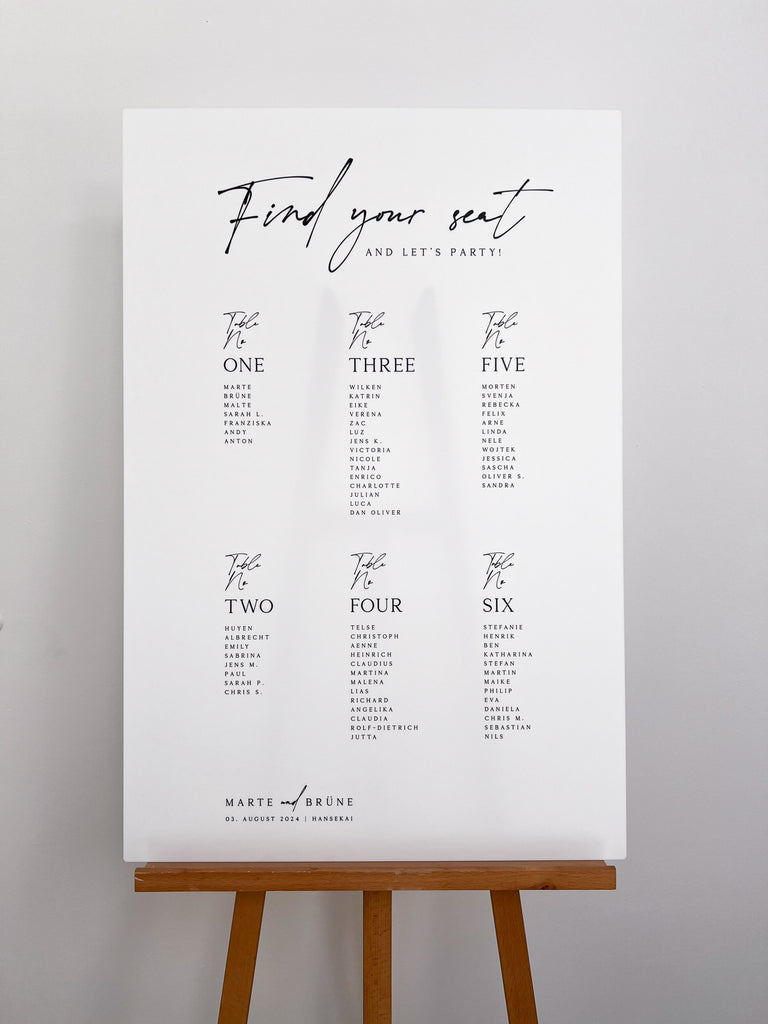 Find your seat
AND LET'S PARTY!
Table
No
ONE
MARTE
BRÜNE
MALTE
SARAH L.
FRANZISKA
ANDY
ANTON
Table
No
TWO
HUYEN
ALBRECHT
EMILY
SABRINA
JENS M.
PAUL
SARAH P.
CHRIS S.
Table
No
THREE
WILKEN
KATRIN
EIKE
VERENA
ZAC
LUZ
JENS K.
VICTORIA
NICOLE
TANJA
ENRICO
CHARLOTTE
JULIAN
LUCA
DAN OLIVER
Table
No
FOUR
TELSE
CHRISTOPH
AENNE
HEINRICH
CLAUDIUS
MARTINA
MALENA
LIAS
RICHARD
ANGELIKA
CLAUDIA
ROLF-DIETRICH
JUTTA
Table
No
FIVE
MORTEN
SVENJA
REBECKA
FELIX
ARNE
LINDA
NELE
WOJTEK
JESSICA
SASCHA
OLIVER S.
SANDRA
Table
No
SIX
STEFANIE
HENRIK
BEN
KATHARINA
STEFAN
MARTIN
MAIKE
PHILIP
EVA
DANIELA
CHRIS M.
SEBASTIAN
NILS
MARTE and BRÜNE
03. AUGUST 2024 | HANSEKAI